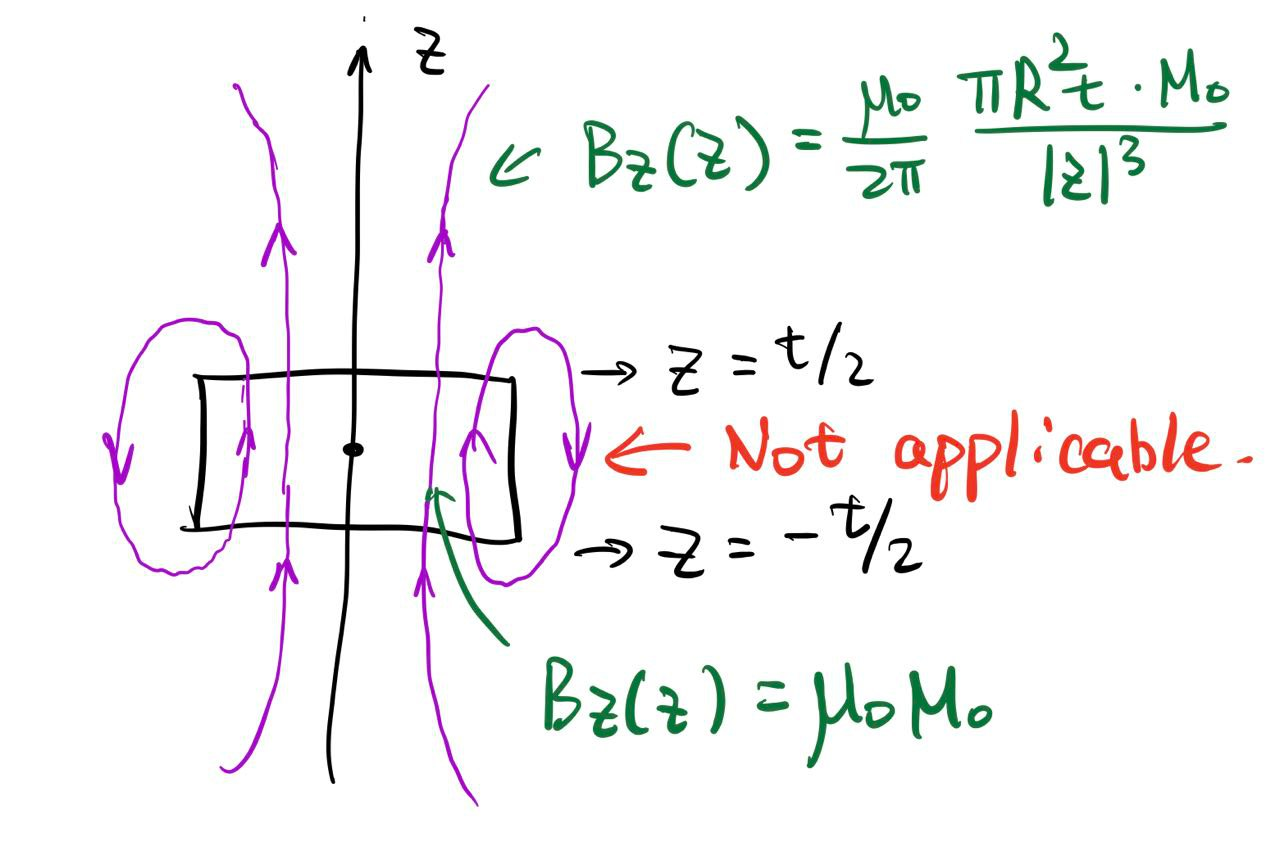 z
Bz(z) = μ₀/2π πR²t · M₀/|z|³
→ z = t/2
← Not applicable.
→ z = -t/2
Bz(z) = μ₀M₀